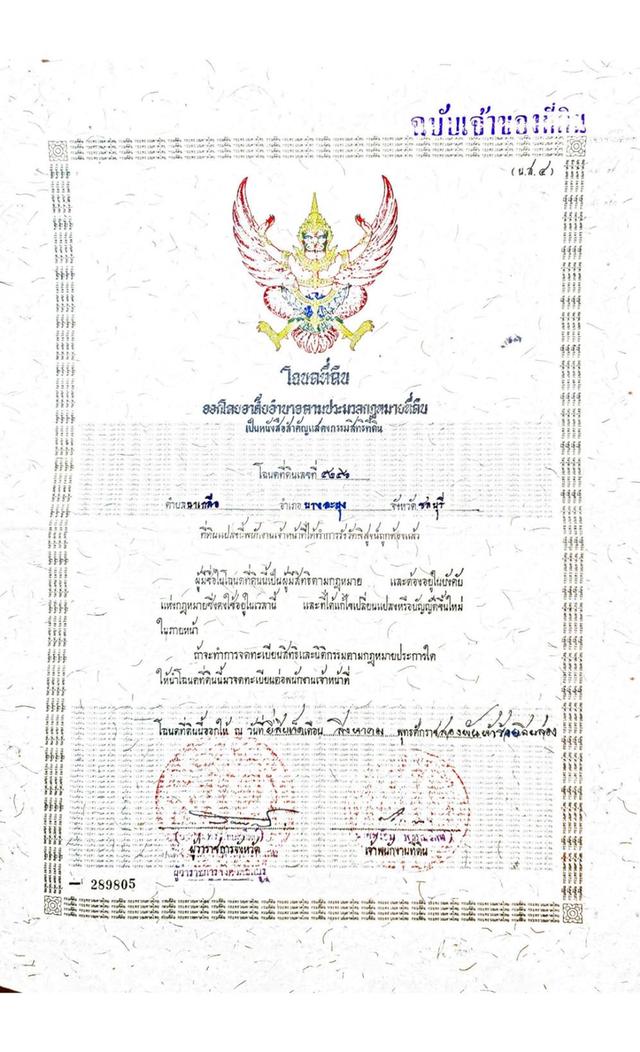 ฉบับเจ้าของที่ดิน
(น.ส.๔)
โฉนดที่ดิน
ออกโดยอาศัยอำนาจตามประมวลกฎหมายที่ดิน
เป็นหนังสือสำคัญแสดงกรรมสิทธิ์ที่ดิน
โฉนดที่ดินเลขที่
ตำบล นาเกลือ อำเภอ บางละมุง จังหวัด ชลบุรี
ที่ดินแปลงนี้พนักงานเจ้าหน้าที่ได้ทำการรังวัดพิสูจน์ถูกต้องแล้ว
ผู้มีชื่อในโฉนดที่ดินนี้เป็นผู้มีสิทธิตามกฎหมาย และต้องอยู่ในบังคับ
แห่งกฎหมายซึ่งคงใช้อยู่ในเวลานี้ และที่ได้แก้ไขเปลี่ยนแปลงหรือบัญญัติขึ้นใหม่
ในภายหน้า
ถ้าจะทำการจดทะเบียนสิทธิและนิติกรรมตามกฎหมายประการใด
ให้นำโฉนดที่ดินนี้มาจดทะเบียนต่อพนักงานเจ้าหน้าที่
โฉนดที่ดินนี้ออกให้ ณ วันที่ ยี่สิบเจ็ด เดือน สิงหาคม พุทธศักราช สองพันห้าร้อยสิบสอง
ผู้ว่าราชการจังหวัด เจ้าพนักงานที่ดิน
ผู้ว่าราชการจังหวัดชลบุรี
— 289805